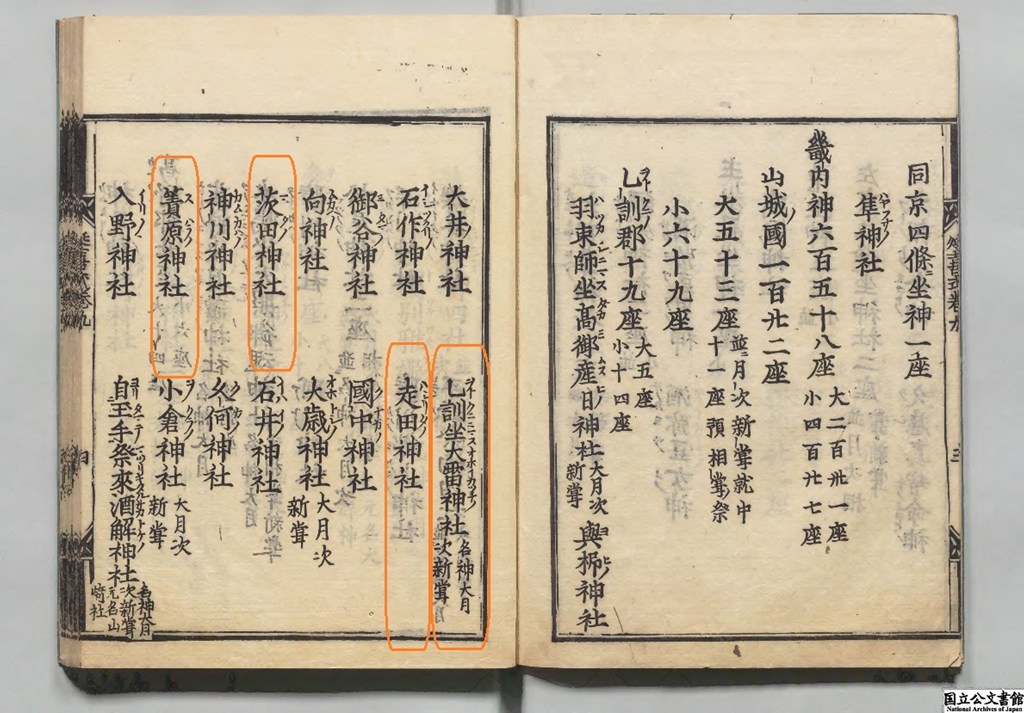 同京四條坐神一座
隼神社
畿內神六百五十八座 大二百卅一座 小四百廿七座
山城國一百廿二座
大五十三座 並月次新嘗就中十一座預相嘗祭
小六十九座
乙訓郡十九座 大五座 小十四座
羽束師坐高御産日神社 大月次新嘗 與杼神社
大井神社 乙訓坐大雷神社 名神大月次新嘗
石作神社 走田神社
御谷神社 國中神社
向神社 大歳神社 大月次新嘗
茨田神社 石井神社
神川神社 久何神社
簀原神社 小倉神社 大月次新嘗
入野神社 自玉手祭來酒解神社 名神大月次新嘗元名山﨑社
延喜式卷九
三
四
国立公文書館
National Archives of Japan